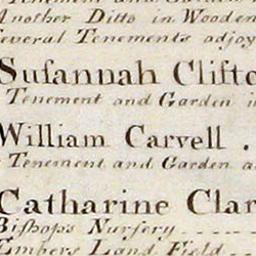 Tenement and Garden
Another Ditto in Wooden
Several Tenements adjoy
Susannah Clifto
Tenement and Garden i
William Carvell .
Tenement and Garden a
Catharine Clar
Bishops Nursery ....
Embers Land Field ..